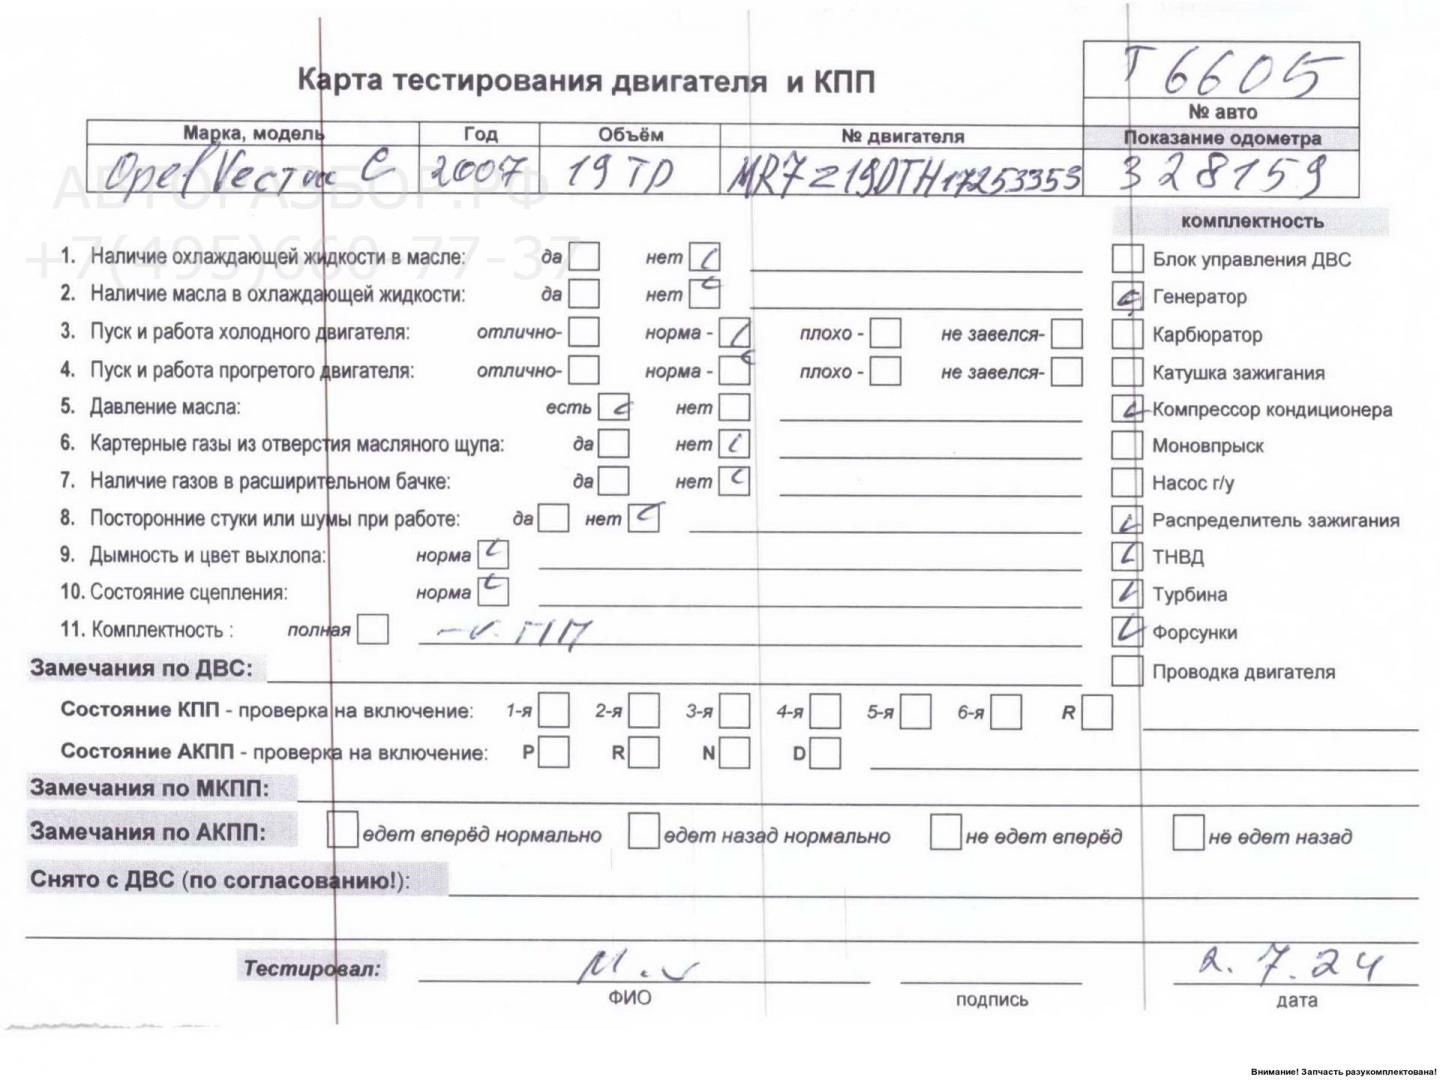 Т6605
Карта тестирования двигателя и КПП
№ авто
Марка, модель Год Объём № двигателя Показание одометра
Opel Vectra C 2007 19 TD Z19DTH17253353 328159
АВТОРАЗБОР.РФ
+7(495)660-77-37
комплектность
1. Наличие охлаждающей жидкости в масле: да нет
Блок управления ДВС
2. Наличие масла в охлаждающей жидкости: да нет
Генератор
3. Пуск и работа холодного двигателя: отлично- норма - плохо - не завелся-
Карбюратор
4. Пуск и работа прогретого двигателя: отлично- норма - плохо - не завелся-
Катушка зажигания
5. Давление масла: есть нет
Компрессор кондиционера
6. Картерные газы из отверстия масляного щупа: да нет
Моновпрыск
7. Наличие газов в расширительном бачке: да нет
Насос г/у
8. Посторонние стуки или шумы при работе: да нет
Распределитель зажигания
9. Дымность и цвет выхлопа: норма
ТНВД
10. Состояние сцепления: норма
Турбина
11. Комплектность : полная
Форсунки
Замечания по ДВС:
Проводка двигателя
Состояние КПП - проверка на включение: 1-я 2-я 3-я 4-я 5-я 6-я R
Состояние АКПП - проверка на включение: P R N D
Замечания по МКПП:
Замечания по АКПП: едет вперёд нормально едет назад нормально не едет вперёд не едет назад
Снято с ДВС (по согласованию!):
Тестировал: 2.7.24
ФИО подпись дата
Внимание! Запчасть разукомплектована!